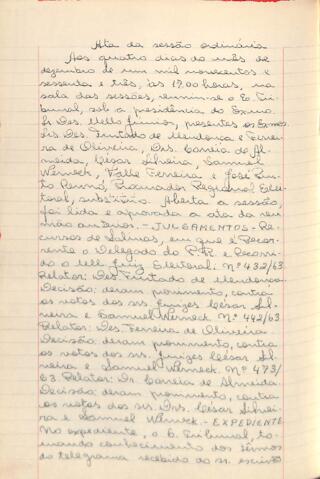 Ata da sessão ordinária
Aos quatro dias do mês de
dezembro de um mil novecentos e
sessenta e três, às 17,00 horas, na
sala das sessões, reuniu-se o E. Tri-
bunal, sob a presidência do Exmo.
Sr. Des. Mello Júnior, presentes os Exmos.
Srs. Des. Furtado de Mendonça e Ferrei-
ra de Oliveira, Drs. Correia de Al-
meida, César Silveira, Samuel
Werneck, Valle Ferreira e José Pin-
to Renno, Procurador Regional Elei-
toral, substituto. Aberta a sessão,
foi lida e aprovada a ata da reu-
nião anterior. - JULGAMENTOS - Re-
cursos de Salinas, em que é Recor-
rente o Delegado do P.R. e Recorri-
do o MM. Juiz Eleitoral: N.º 432/63
Relator: Des. Furtado de Mendonça
Decisão: deram provimento, contra
os votos dos srs. juizes César Sil-
veira e Samuel Werneck. N.º 442/63
Relator: Des. Ferreira de Oliveira.
Decisão: deram provimento, contra
os votos dos srs. juizes César Sil-
veira e Samuel Werneck. N.º 473/
63. Relator: Dr. Correia de Almeida.
Decisão: deram provimento, contra
os votos dos srs. Drs. César Silvei-
ra e Samuel Werneck. - EXPEDIENTE
No expediente, o E. Tribunal, to-
mando conhecimento dos termos
do telegrama recebido do sr. escrivão